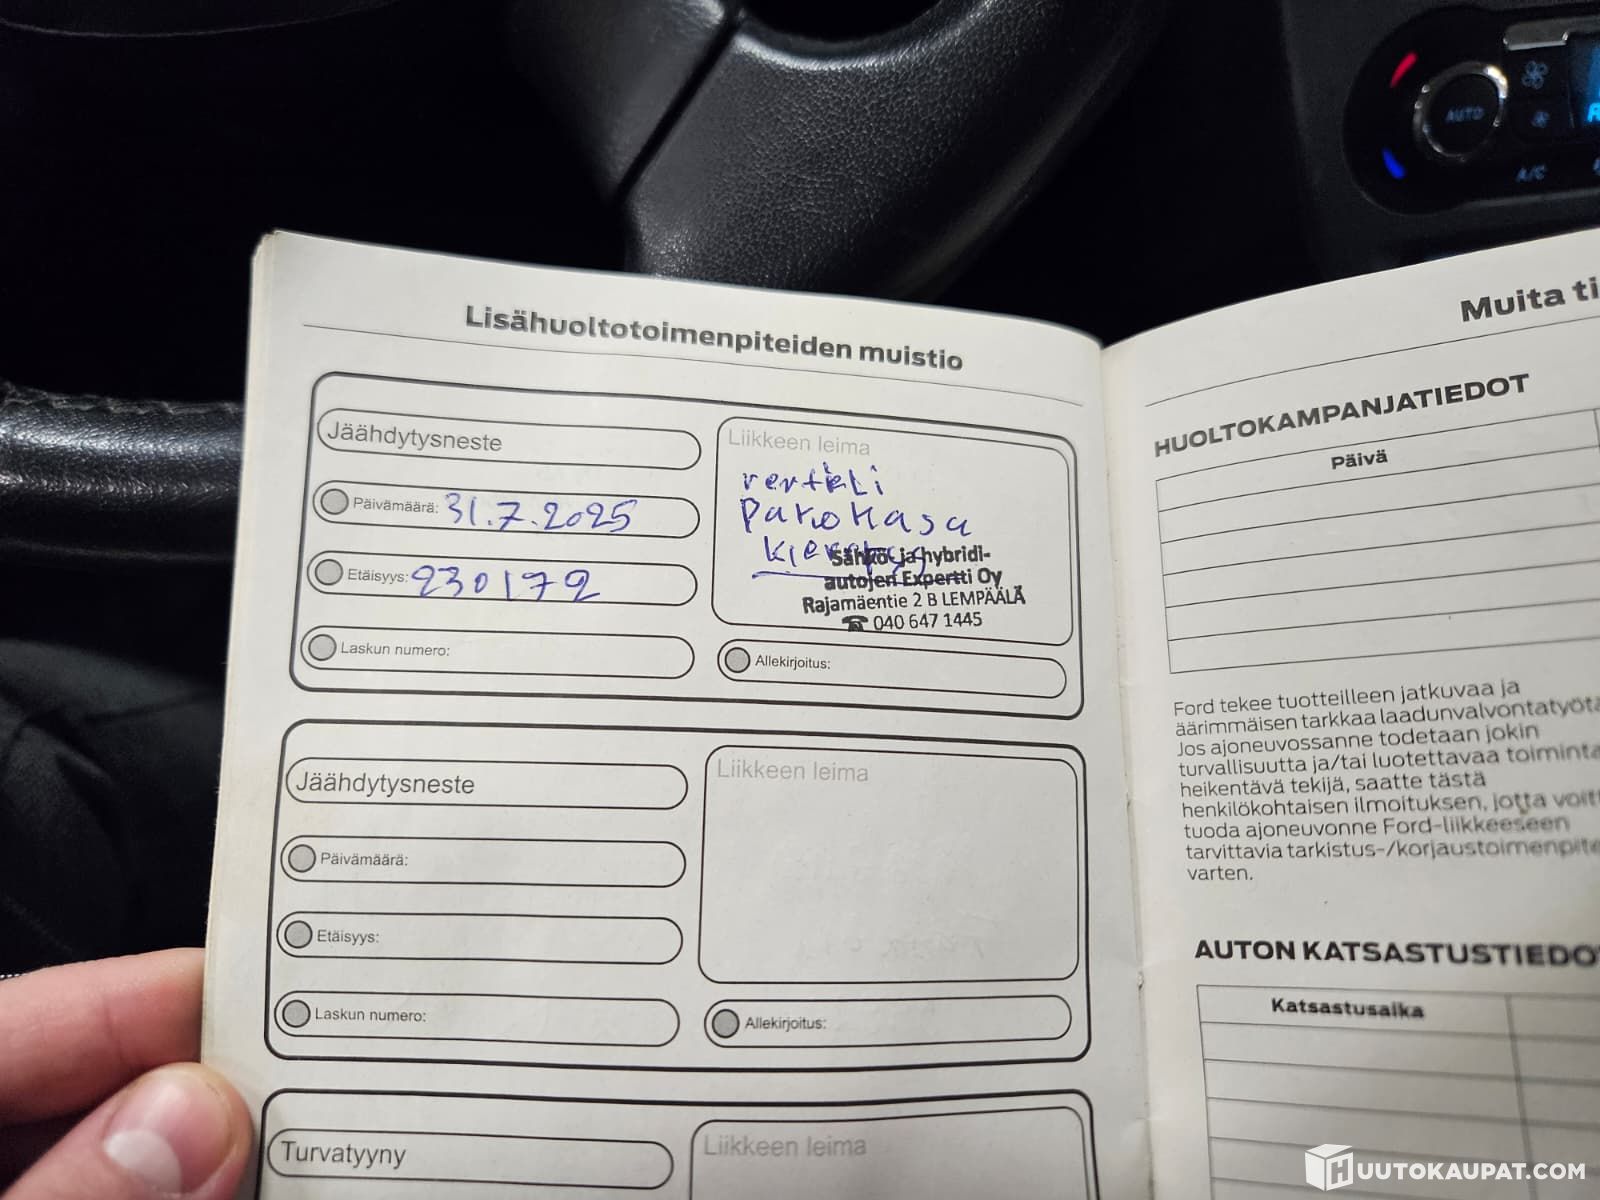 AUTO
A/C
Lisähuoltotoimenpiteiden muistio
Jäähdytysneste
Päivämäärä: 31.7.2025
Etäisyys: 230172
Laskun numero:
Liikkeen leima
venttili
pakokasu
Sähkö- ja hybridi-
autojen Expertti Oy
Rajamäentie 2 B LEMPÄÄLÄ
☎ 040 647 1445
Allekirjoitus:
Jäähdytysneste
Päivämäärä:
Etäisyys:
Laskun numero:
Liikkeen leima
Allekirjoitus:
Turvatyyny
Liikkeen leima
Muita ti
HUOLTOKAMPANJATIEDOT
Päivä
Ford tekee tuotteilleen jatkuvaa ja
äärimmäisen tarkkaa laadunvalvontatyötä
Jos ajoneuvossanne todetaan jokin
turvallisuutta ja/tai luotettavaa toiminta
heikentävä tekijä, saatte tästä
henkilökohtaisen ilmoituksen, jotta voitt
tuoda ajoneuvonne Ford-liikkeeseen
tarvittavia tarkistus-/korjaustoimenpite
varten.
AUTON KATSASTUSTIEDO
Katsastusaika
HUUTOKAUPAT.COM